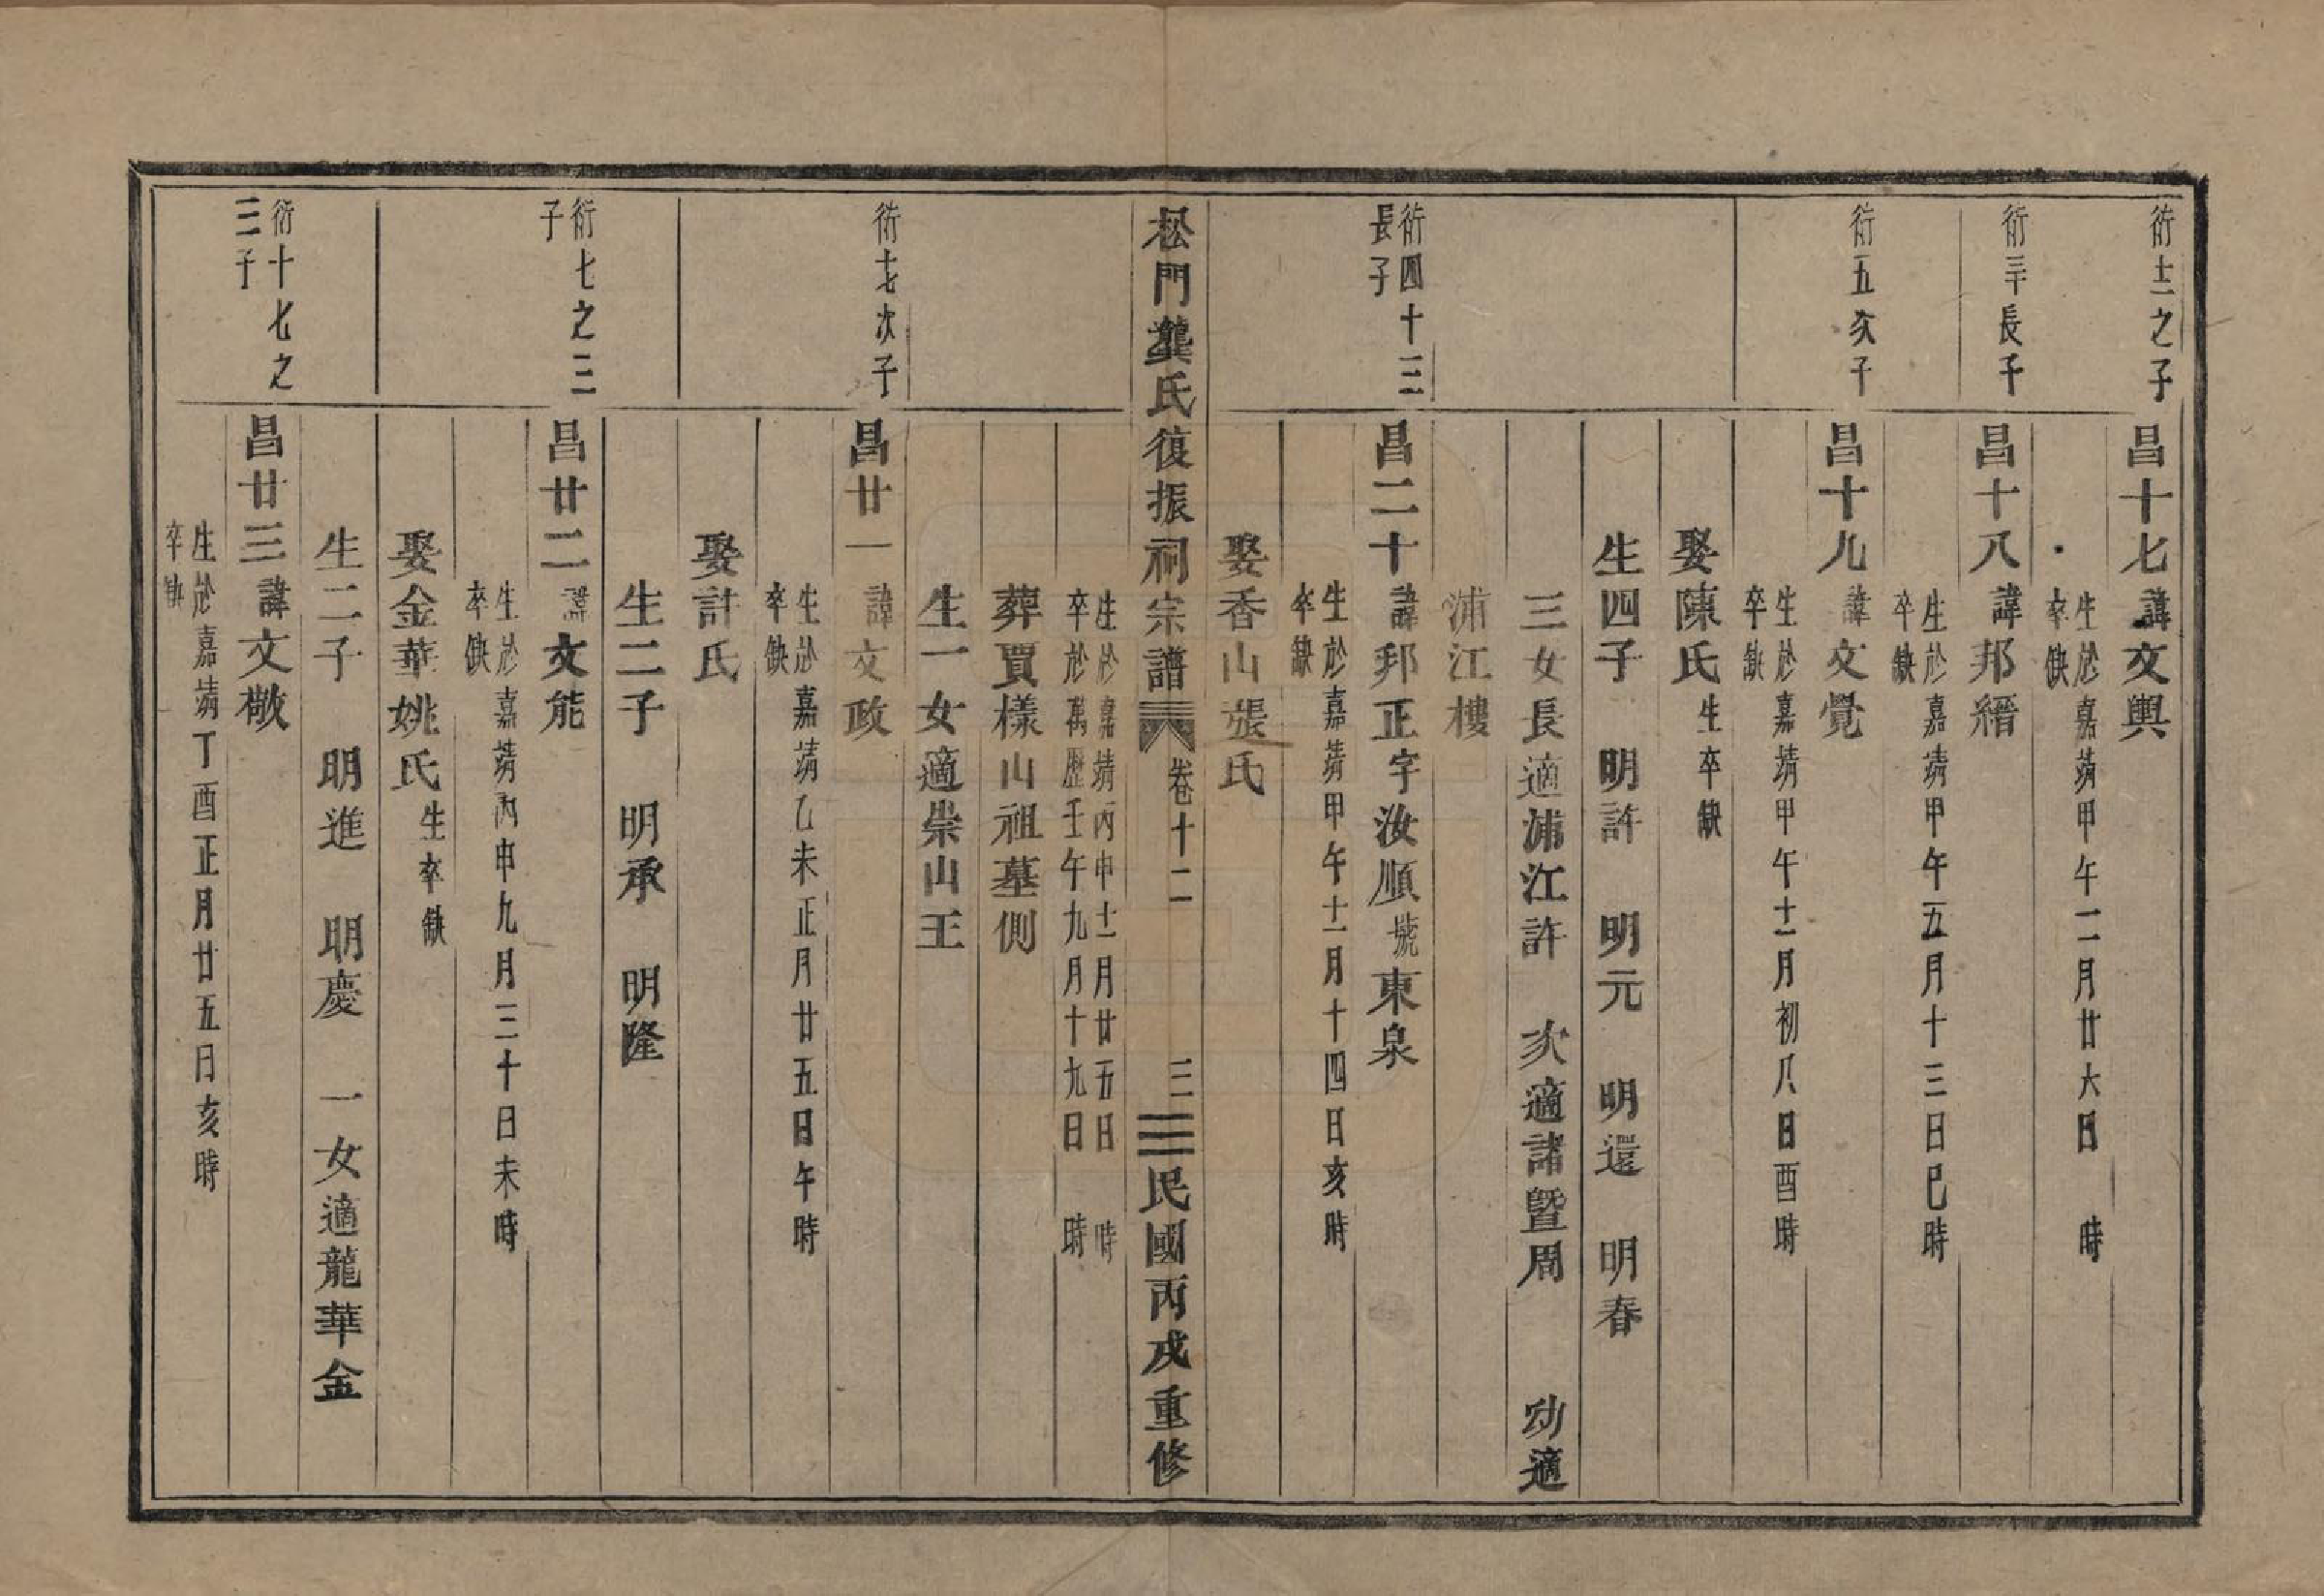 衍十二之子
昌十七諱文輿
生於嘉靖甲午二月廿六日　時
卒缺
衍三十長子
昌十八諱邦縉
生於嘉靖甲午五月十三日巳時
卒缺
衍五次子
昌十九諱文覺
生於嘉靖甲午十二月初八日酉時
卒缺
娶陳氏生卒缺
生四子　明許　明元　明還　明春
三女長適浦江許　次適諸暨周　幼適
浦江樓
衍四十三
長子
昌二十諱邦正字汝順號東泉
生於嘉靖甲午十二月十四日亥時
卒缺
娶香山張氏
松門龔氏復振祠宗譜　卷十二　三　民國丙戌重修
生於嘉靖丙申十二月廿五日　時
卒於萬歷壬午九月十九日　時
葬賈樣山祖墓側
生一女適崇山王
衍十七次子
昌廿一諱文政
生於嘉靖乙未正月廿五日午時
卒缺
娶計氏
生二子　明承　明隆
衍七之三
子
昌廿二諱文能
生於嘉靖丙申九月三十日未時
卒缺
娶金華姚氏生卒缺
生二子　明進　明慶　一女適龍華金
衍十七之
三子
昌廿三諱文敬
生於嘉靖丁酉正月廿五日亥時
卒缺